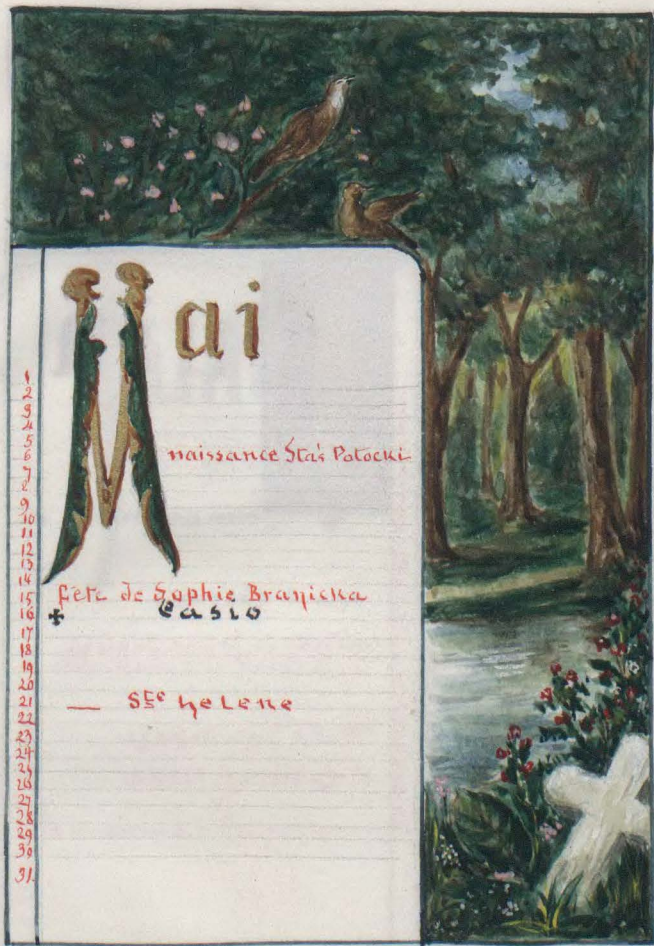 Mai
1
2
3
4
5
6 naissance Staś Potocki
7
8
9
10
11
12
13
14
15 fête de Sophie Branicka
16 + Casio
17
18
19
20
21 — Ste helene
22
23
24
25
26
27
28
29
30
31.